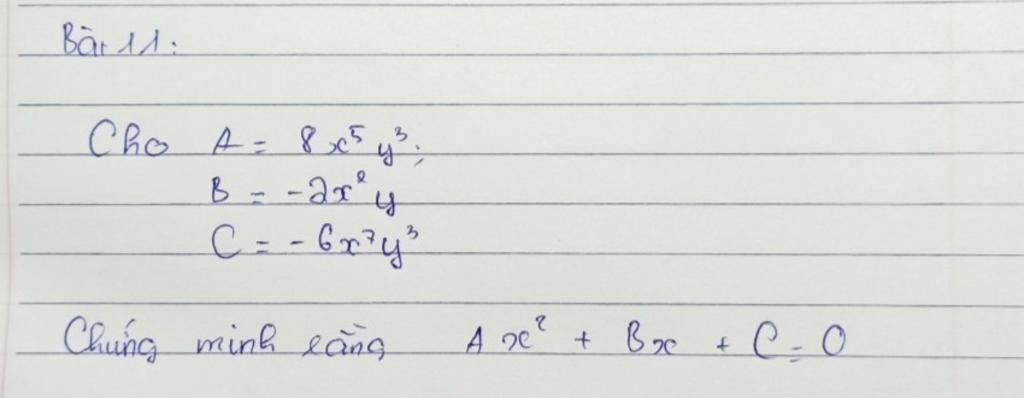 Bài 11:
Cho A = 8x⁵y³;
B = -2x²y
C = -6x⁷y³
Chứng minh rằng Ax² + Bx + C = 0